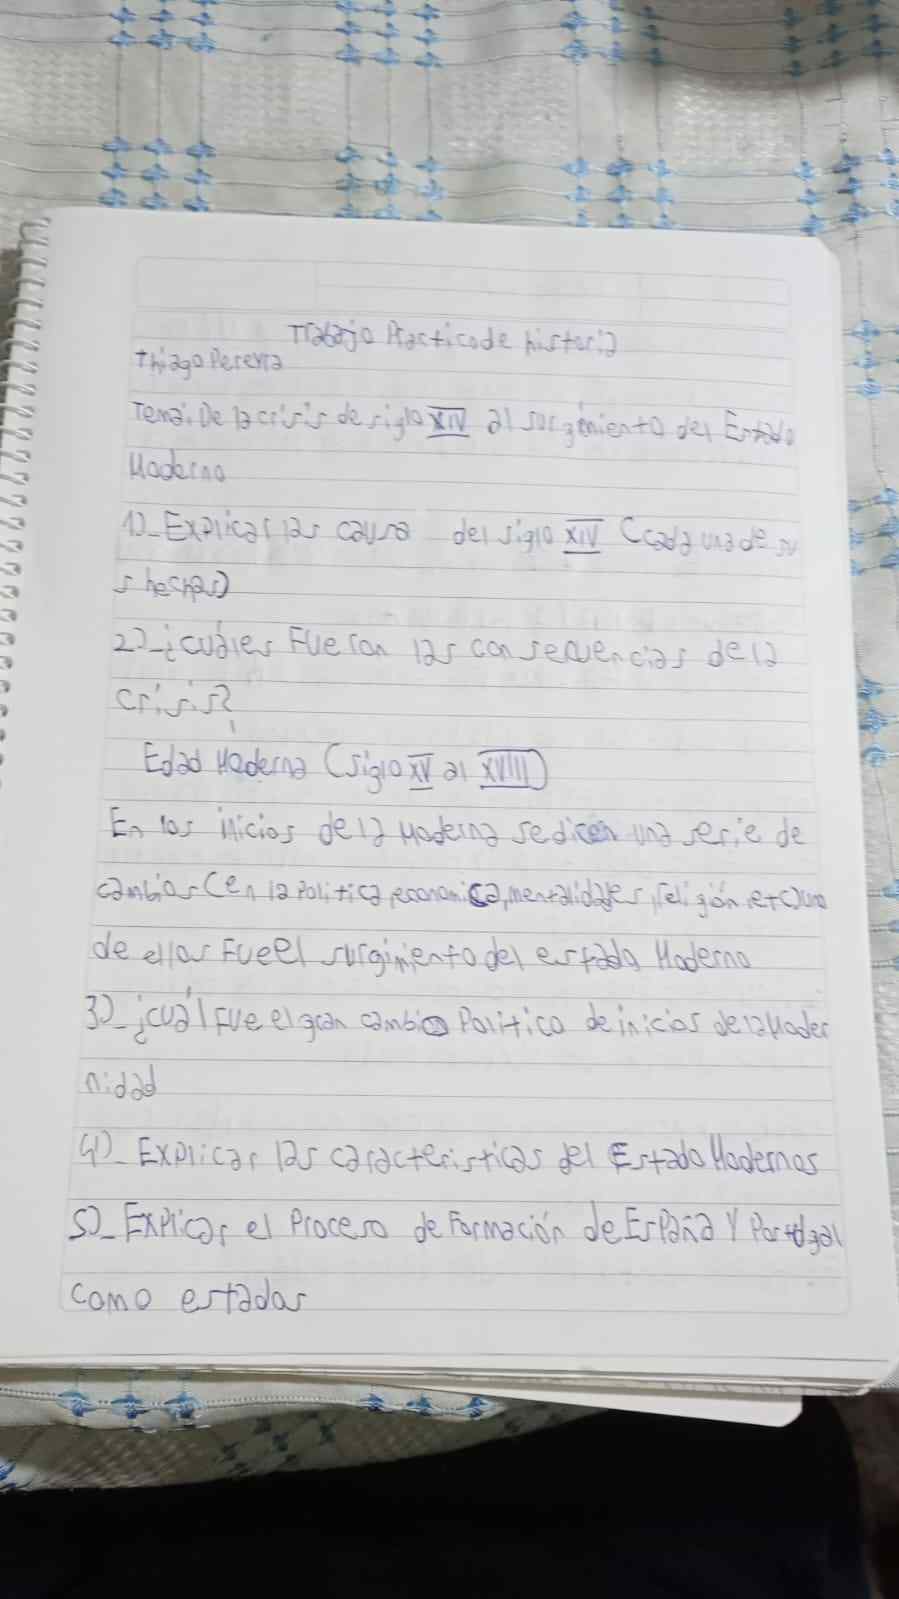 Trabajo Practico de historia
Thiago Pereyra
Tema: De la crisis de siglo XIV al surgimiento del Estado
Moderno
1)_ Explicar las causa del siglo XIV (cada una de su
s hechos)
2)_ ¿cuáles Fueron las consecuencias de la
crisis?
Edad Moderna (siglo XV al XVIII)
En los inicios de la Moderna se dicen una serie de
cambios (en la Politica, economica, mentalidades, religión, etc) uno
de ellos Fue el surgimiento del estado Moderno
3)_ ¿cuál Fue el gran cambio Politico de inicios de la Moder
nidad
4)_ Explicar las caracteristicas del Estado Modernos
5)_ Explicar el Proceso de Formación de España Y Portugal
como estados